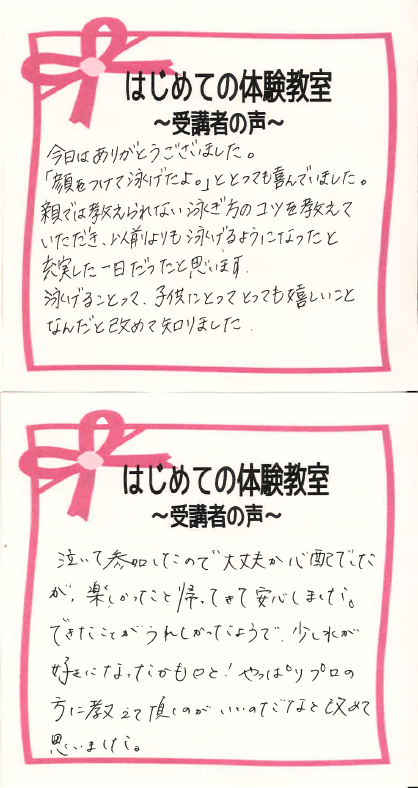 はじめての体験教室
～受講者の声～
今日はありがとうございました。
「顔をつけて泳げたよ。」ととっても喜んでいました。
親では教えられない泳ぎ方のコツを教えて
いただき、以前よりも泳げるようになったと
充実した一日だったと思います.
泳げることって、子供にとってとっても嬉しいこと
なんだと改めて知りました.
はじめての体験教室
～受講者の声～
泣いて参加したので大丈夫か心配でした
が、楽しかったと帰ってきて安心しました。
できたことがうれしかったようで、少し水が
好きになったかも〇と！やっぱりプロの
方に教えて頂くのがいいのだなと改めて
思いました。